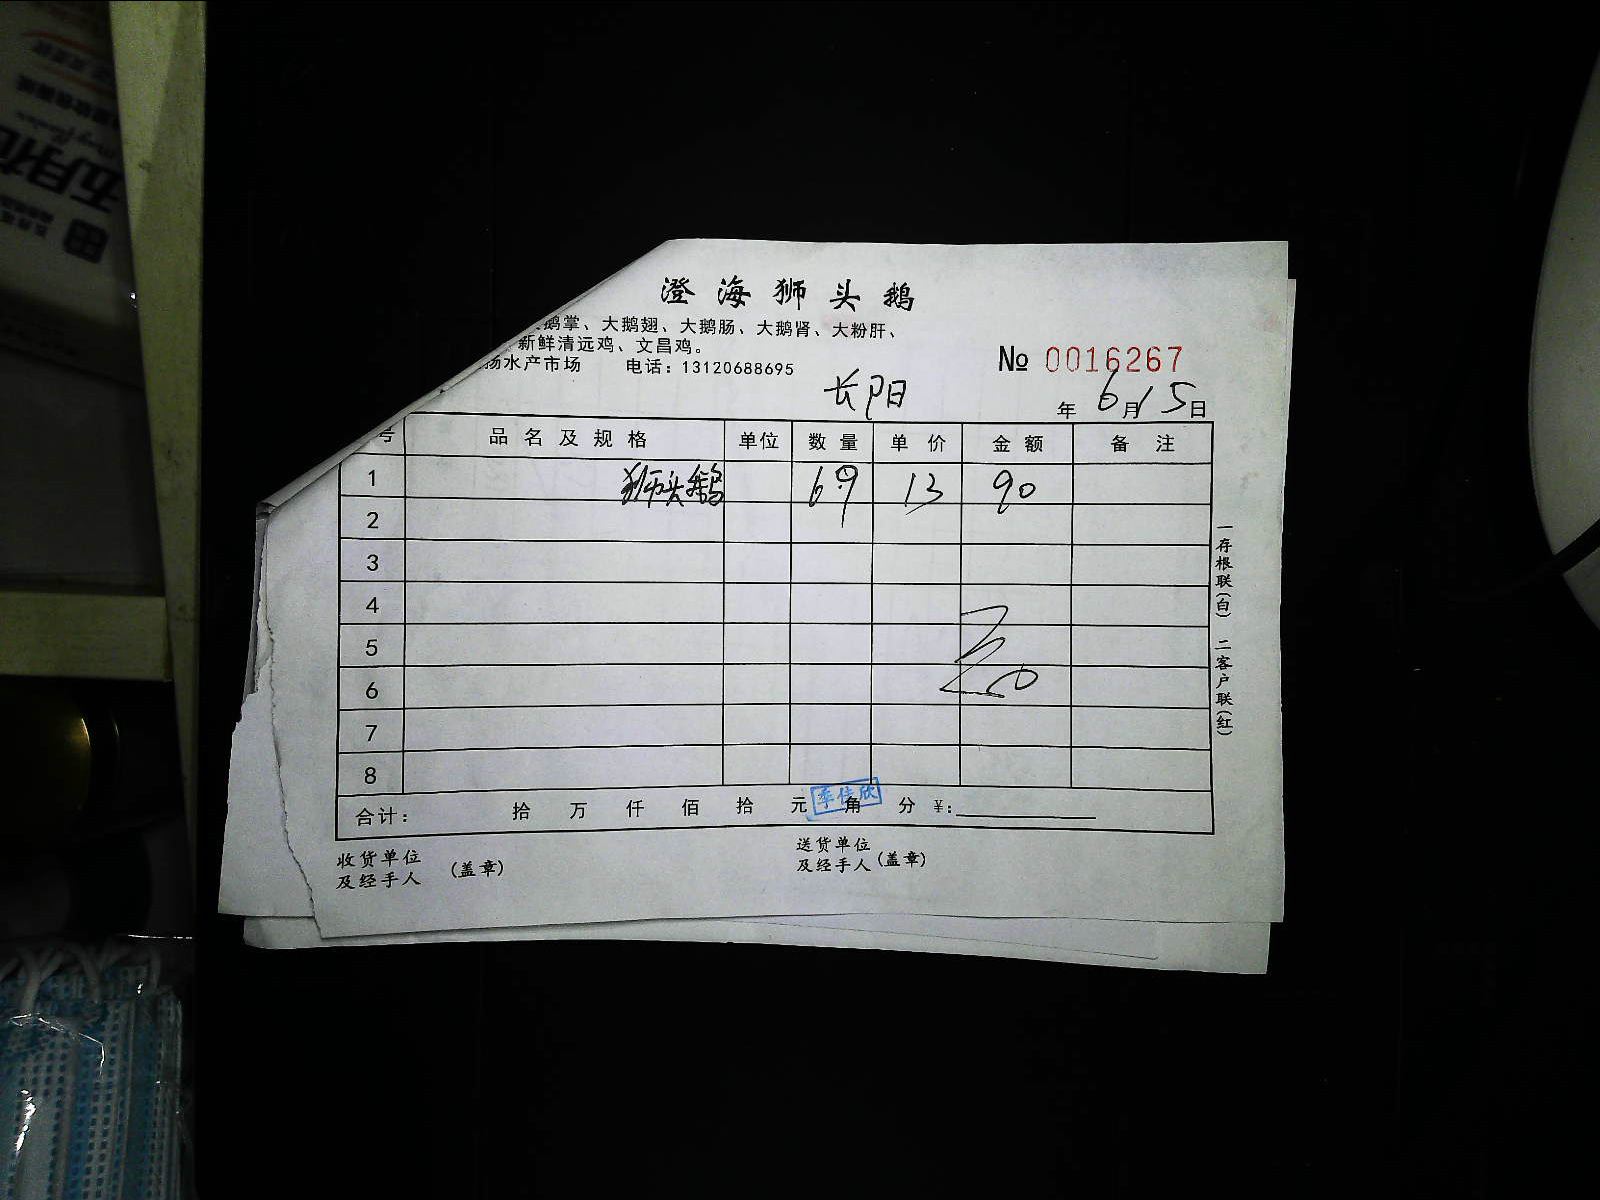 澄海狮头鹅
鹅掌、大鹅翅、大鹅肠、大鹅肾、大粉肝、
新鲜清远鸡、文昌鸡。
扬水产市场 电话：13120688695
№ 0016267
长阳
年 6月15日
号 品名及规格 单位 数量 单价 金额 备注
1 狮头鹅 6.9 13 90
2
3
4
5
6
7
8
合计： 拾 万 仟 佰 拾 元 角 分 ¥：
季佳欣
收货单位
及经手人 （盖章）
送货单位
及经手人（盖章）
一存根联（白） 二客户联（红）
五月花